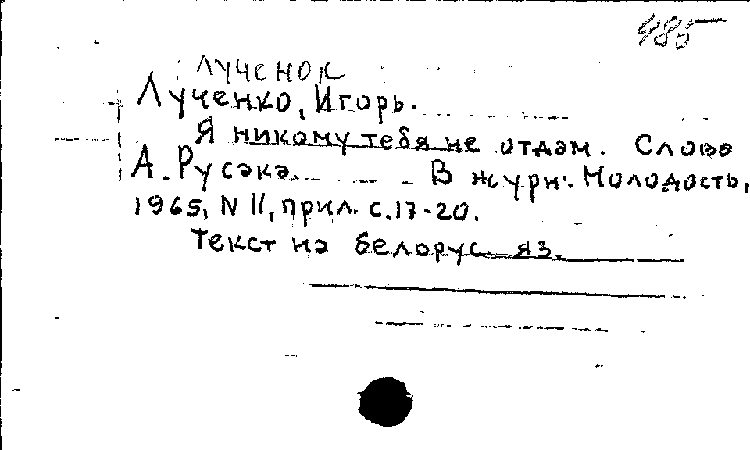 485
Лученок
Лученко, Игорь.
Я никому тебя не отдам. Слова
А. Русака. В журн. Молодость,
1965, N 11, прил. с. 17-20.
Текст на белорус. яз.